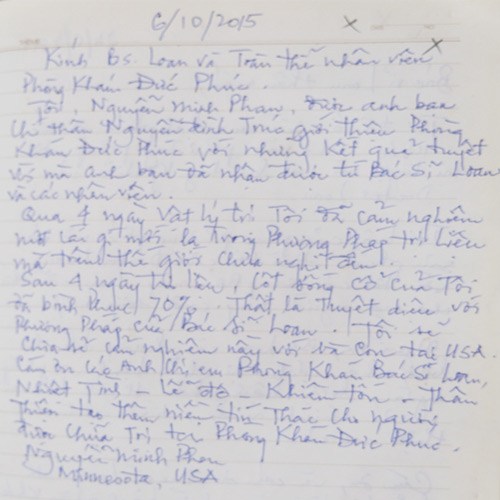 6/10/2015
Kính Bs. Loan và Toàn thể nhân viên
Phòng Khám Đức Phúc.
Tôi, Nguyễn Minh Phan, được anh bạn
chí thân Nguyễn Đình Trúc giới thiệu Phòng
Khám Đức Phúc với những kết quả tuyệt
vời mà anh bạn đã nhận được từ Bác Sĩ Loan
và các nhân viên.
Qua 4 ngày Vật lý trị Tôi đã cảm nghiệm
một cái gì mới lạ trong Phương Pháp trị liệu
mà trên thế giới chưa nghĩ đến.
Sau 4 ngày trị liệu, cột sống cổ của Tôi
đã bình phục 70%. Thật là tuyệt diệu với
Phương Pháp của Bác Sĩ Loan. Tôi sẽ
Chia sẽ cảm nghiệm này với bà con tại USA.
Cảm ơn các Anh Chị em Phòng Khám Bác Sĩ Loan,
Nhiệt Tình - Lễ độ - Khiêm tốn - Thân
Thiện tạo thêm niềm tín Thác cho người
được Chữa Trị tại Phòng Khám Đức Phúc.
Nguyễn Minh Phan
Minnesota, USA